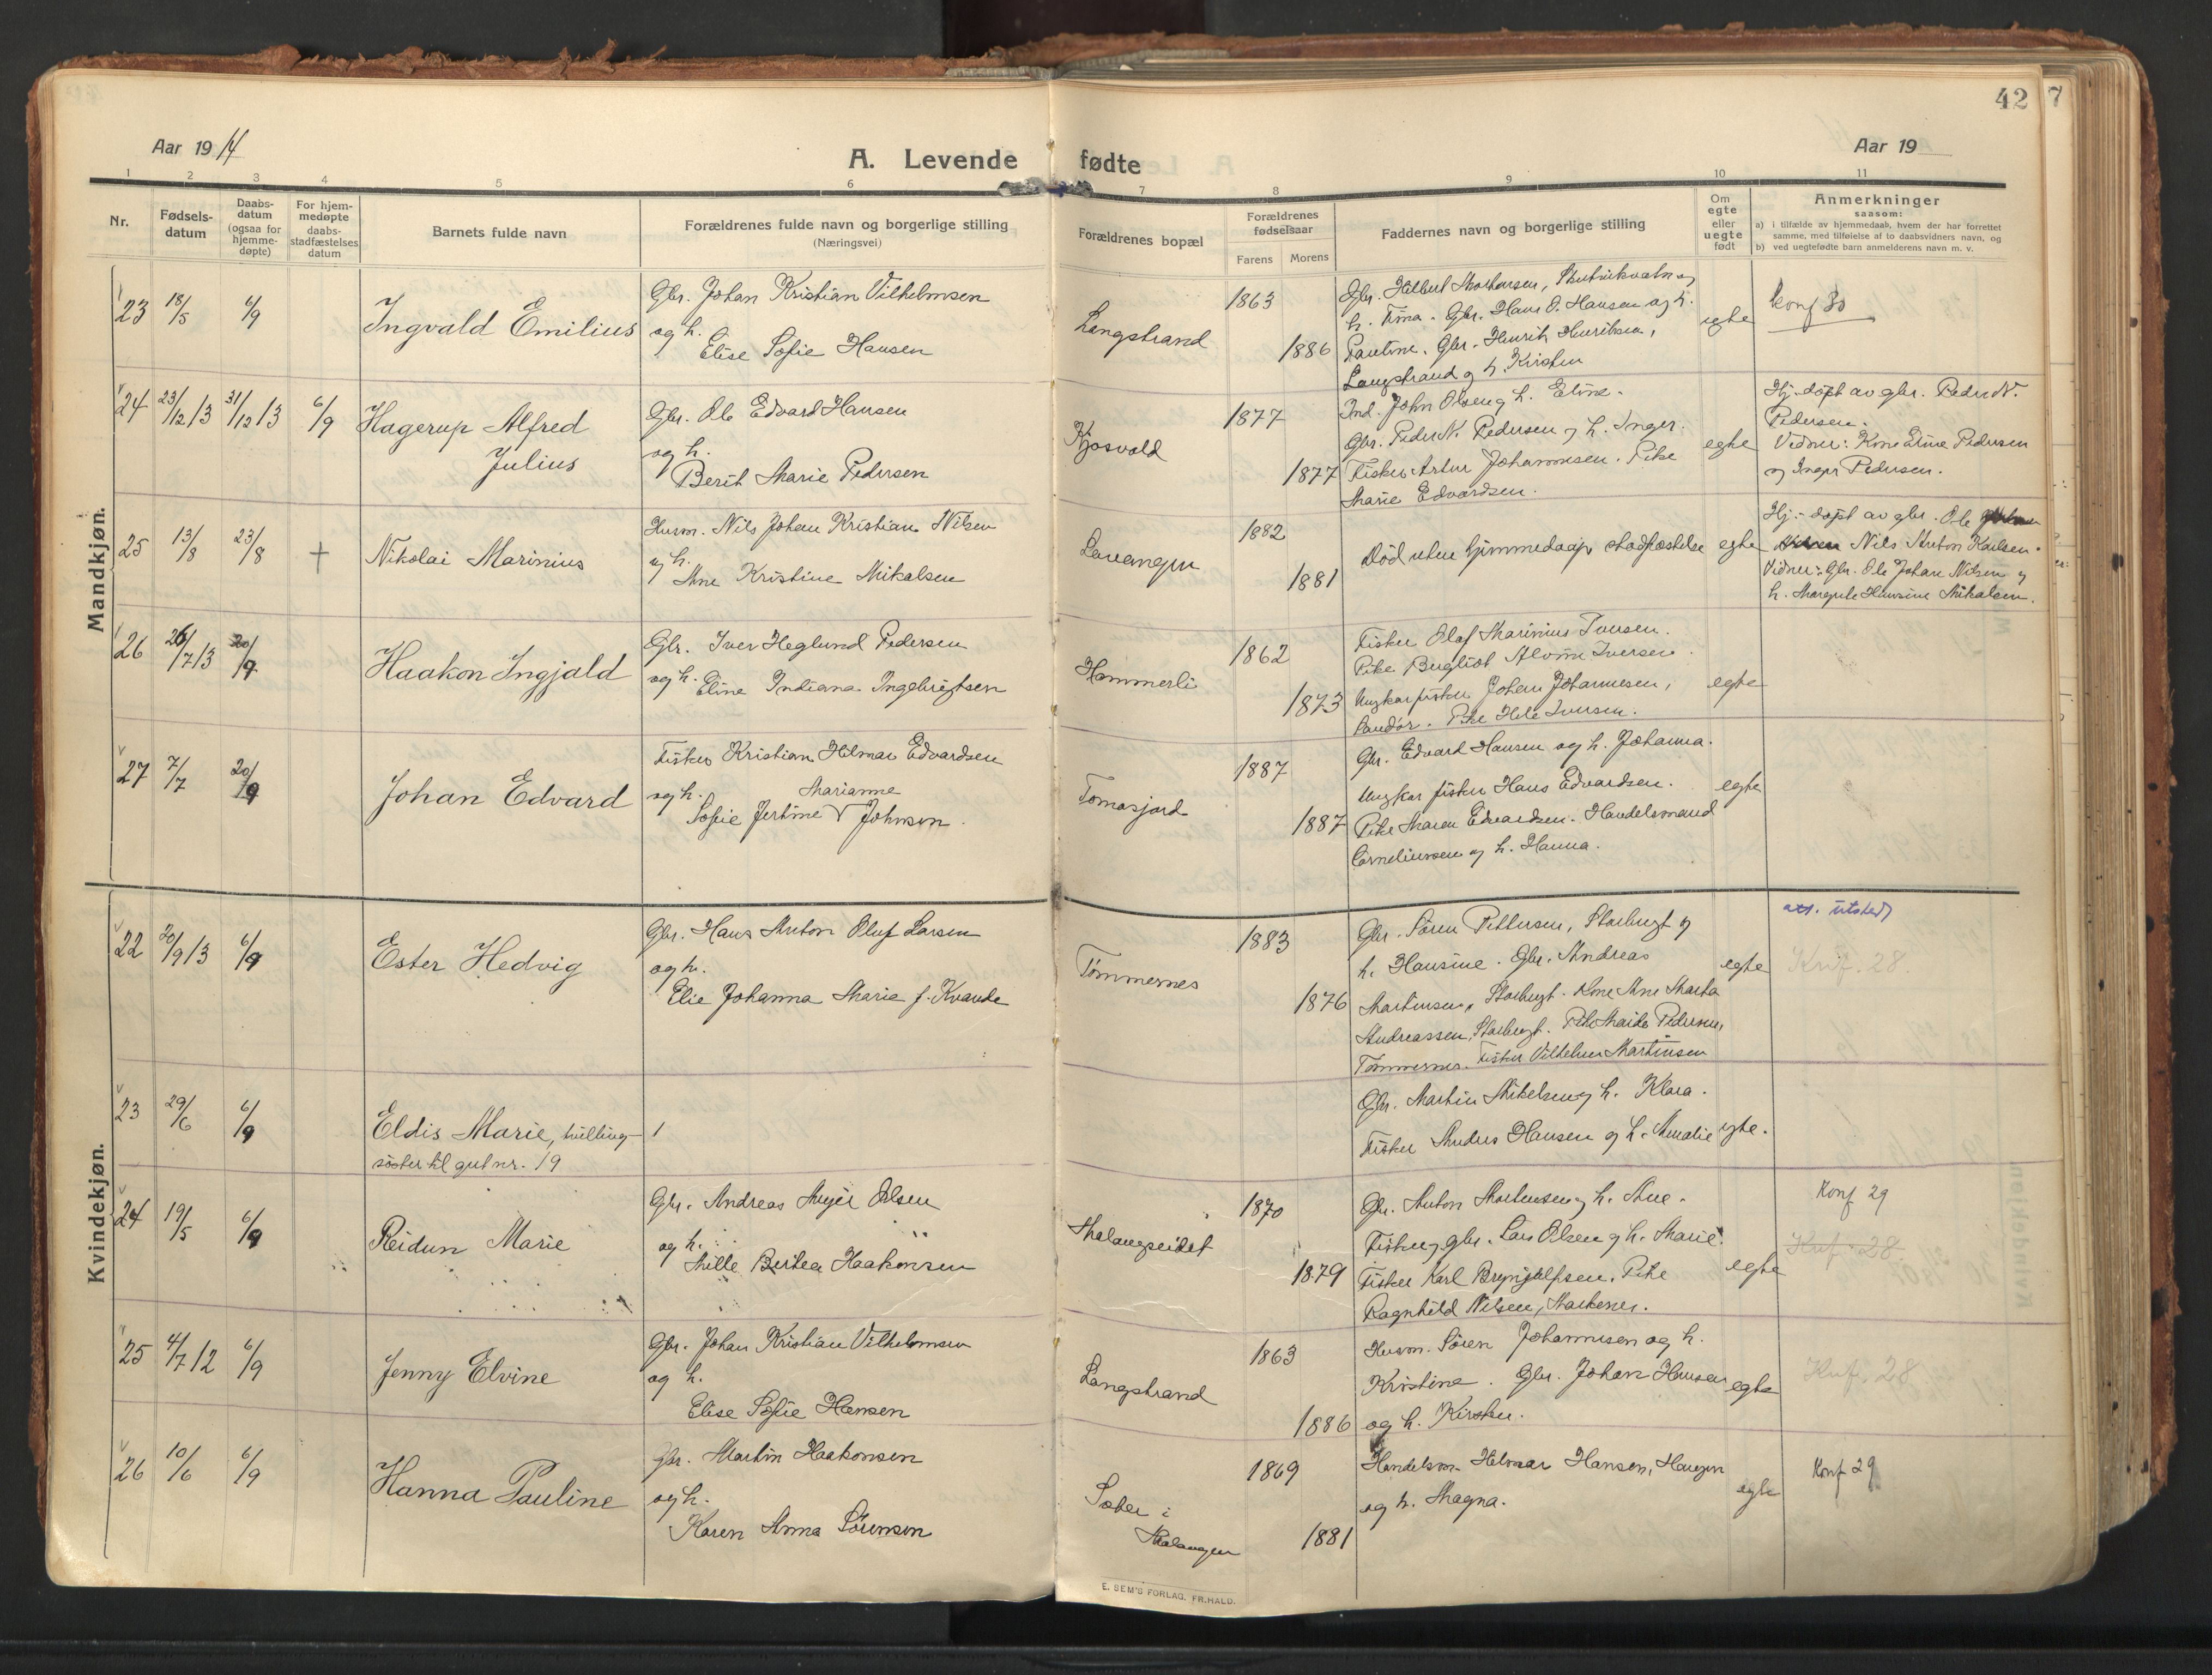 42 7
Aar 1914
A. Levende fødte
Aar 19
1 2 3 4 5 6 7 8 9 10 11
Nr.
Fødsels-
datum
Daabs-
datum
(ogsaa for
hjemme-
døpte)
For hjem-
medøpte
daabs-
stadfæstelses
datum
Barnets fulde navn
Forældrenes fulde navn og borgerlige stilling
(Næringsvei)
Forældrenes bopæl
Forældrenes
fødselsaar
Farens Morens
Faddernes navn og borgerlige stilling
Om
egte
eller
uegte
født
Anmerkninger
saasom:
a) i tilfælde av hjemmedaab, hvem der har forrettet
samme, med tilføielse af to daabsvidners navn, og
b) ved uegtefødte barn anmelderens navn m. v.
Mandkjøn.
23 18/5 6/9
Ingvald Emilius
Gbr. Johan Kristian Vilhelmsen
og h.
Elise Sofie Hansen
Langstrand
1863
1886
h. Tina. Gbr. Hans O. Hansen og h.
Pauline. Gbr. Henrik Henriksen,
Langstrand og h. Kirsten
egte
Konf 30
24 23/12 13 31/12 13 6/9
Hagerup Alfred
Julius
Gbr. Ole Edvard Hansen
og h.
Berit Marie Pedersen
Kjosvold
1877
1877
Ind. John Olsen og h. Eline.
Gbr. Peder N. Pedersen og h. Inger.
Fisker Artur Johannesen. Pike
Marie Edvardsen.
egte
Hj.-døpt av gbr. Peder N.
Pedersen.
Vidner: Kone Eline Pedersen
og Inger Pedersen.
25 13/8 23/8 +
Nikolai Marinius
Husm. Nils Johan Kristian Nilsen
og h.
Ane Kristine Mikalsen
Lavangen
1882
1881
Død uten hjemmedaaps stadfæstelse
egte
Hj.-døpt av gbr. Ole
Nils Anton Karlsen.
Vidner: Gbr. Ole Johan Nilsen og
h. Margrete Hansine Mikalsen.
26 26/7 13 20/9
Haakon Ingjald
Gbr. Iver Heglund Pedersen
og h.
Eline Indiana Ingebrigtsen
Hammerli
1862
1873
Fisker Olaf Marinius Iversen.
Pike Bergliot Alvine Iversen.
Ungkar fisker Johan Johannesen,
Sandør. Pike Hele Iversen.
egte
27 7/7 20/9
Johan Edvard
Fisker Kristian Hilmar Edvardsen
og h. Marianne
Sofie Jertine V Johnsen.
Tomasjord
1887
1887
Gbr. Edvard Hansen og h. Johanna.
Ungkar fisker Hans Edvardsen.
Pike Maren Edvardsen. Handelsmand
Corneliussen og h. Hanna.
egte
Kvindekjøn.
22 20/9 13 6/9
Ester Hedvig
Gbr. Hans Anton Oluf Larsen
og h.
Elie Johanna Marie f. Kvande
Tømmernes
1883
1876
Gbr. Søren Pettersen, Storbugt og
h. Hansine. Gbr. Andreas
Martinsen, Storbugt. Kone Ane Marta
Andreassen, Storbugt. Pike Pedersen,
Tømmernes. Fisker Vilhelm Martinsen
egte
att. utstedt
Knf. 28.
23 29/6 6/9
Eldis Marie, tvilling-
søster til gut nr. 19
Gbr. Martin Mikelsen og h. Klara.
Fisker Anders Hansen og h. Amalie
egte.
24 19/5 6/9
Reidun Marie
Gbr. Andreas Meyer Olsen
og h.
Mille Bertea Haakonsen
Malangseidet
1870
1879
Gbr. Anton Mortensen og h. Ane.
Fisker og gbr. Lars Olsen og h. Marie.
Fisker Karl Brynjulfsen. Pike
Ragnhild Nilsen, Markenes.
egte
Konf 29
Knf. 28.
25 4/7 12 6/9
Jenny Elvine
Gbr. Johan Kristian Vilhelmsen
og h.
Elise Sofie Hansen
Langstrand
1863
1886
Husm. Søren Johannesen og h.
Kristine. Gbr. Johan Hansen
og h. Kirsten.
egte
Knf. 28
26 10/6 6/9
Hanna Pauline
Gbr. Martin Haakonsen
og h.
Karen Anna Sørensen
Sæter i
Malangen
1869
1881
Handelsm. Hilmar Hansen, Haugen
og h. Magna.
egte
Konf 29
E. SEM'S FORLAG, FR.HALD.